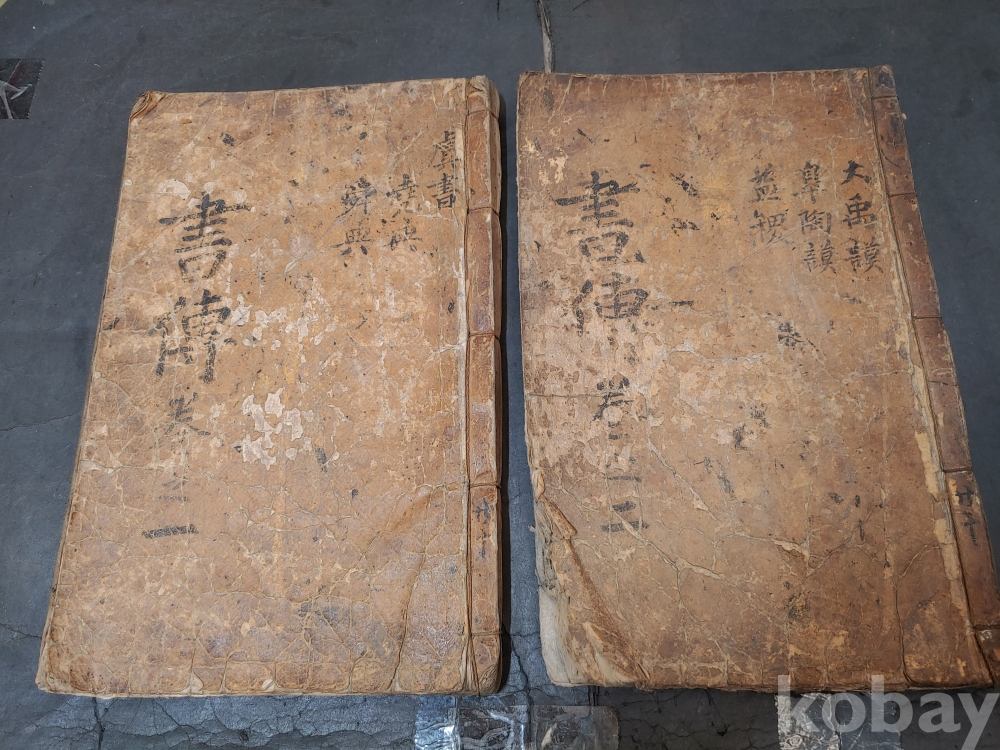 虞書
堯典
舜典
書傳
卷之一
大禹謨
皐陶謨
益稷
書傳
卷之二
kobay